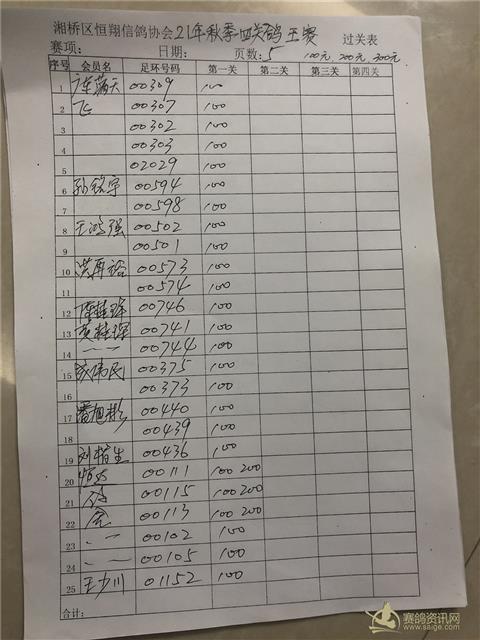 湘桥区恒翔信鸽协会21年秋季四关鸽王赛 过关表
赛项: 日期: 页数:5 100元,200元,300元
序号 会员名 足环号码 第一关 第二关 第三关 第四关
1 满天 00309 100
2 飞 00307 100
3 00302 100
4 00303 100
5 02029 100
6 孙铭宇 00594 100
7 00598 100
8 王鸿强 00502 100
9 00501 100
10 洪再裕 00573 100
11 00574 100
12 陈桂琛 00746 100
13 黄桂琛 00741 100
14 一一 00744 100
15 伟民 00375 100
00373 100
17 番旭彬 00440 100
18 00439 100
19 刘楷生 00436 100
20 恒达 00111 100 200
21 00115 100 200
22 00113 100 200
23 00102 100
24 00105 100
25 王少川 01152 100
合计:
赛鸽资讯网
www.saige.com